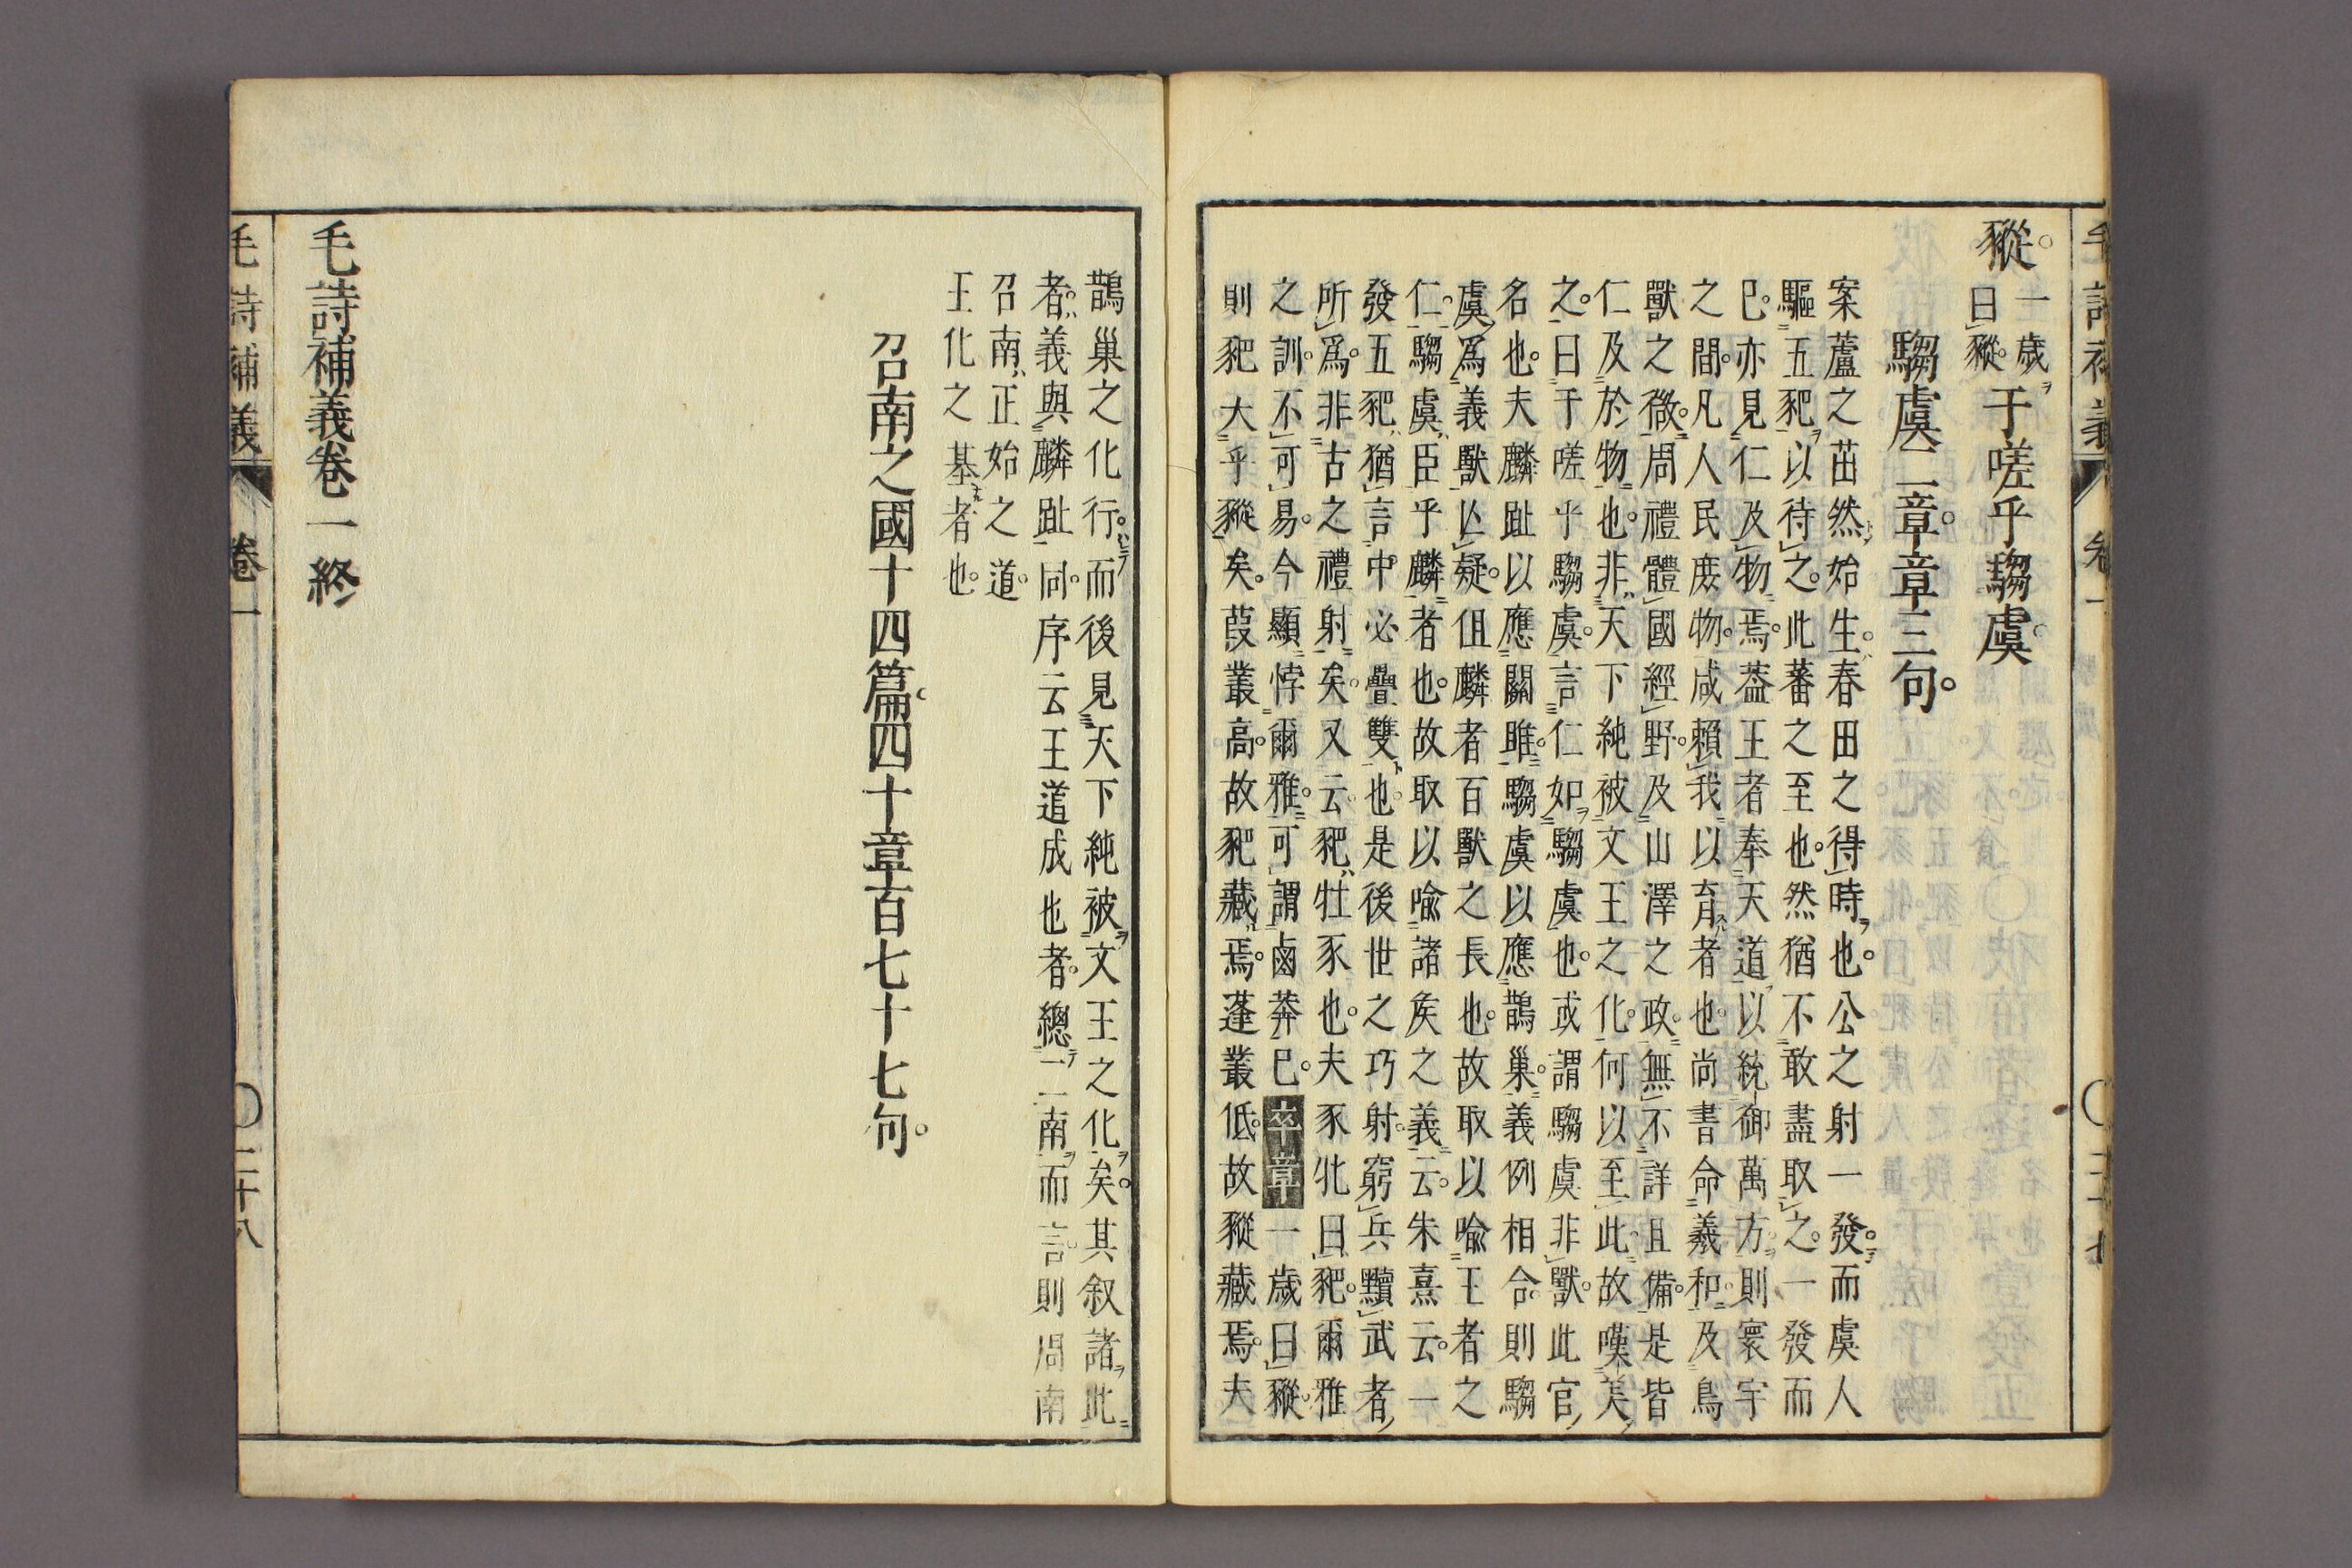 毛詩補義 卷一 〇二十七
豵。一歲曰豵。于嗟乎騶虞。
騶虞二章。章三句。
案蘆之茁然始生。春田之得時也。公之射一發。而虞人
驅五豝以待之。此蕃之至也。然猶不敢盡取之。一發而
已。亦見仁及物焉。葢王者奉天道以統御萬方。則寰宇
之間。凡人民庶物。咸賴我以育者也。尚書命羲和。及鳥
獸之微。周禮體國經野。及山澤之政。無不詳且備。是皆
仁及於物也。非天下純被文王之化。何以至此。故嘆美
之。曰于嗟乎騶虞。言仁如騶虞也。或謂騶虞非獸。此官
名也。夫麟趾以應關雎。騶虞以應鵲巢。義例相合。則騶
虞爲義獸亡疑。但麟者百獸之長也。故取以喻王者之
仁。騶虞臣乎麟者也。故取以喻諸矦之義云。朱熹云。一
發五豝。猶言中必疊雙也。是後世之巧射。窮兵黷武者
所爲。非古之禮射矣。又云豝牡豕也。夫豕牝曰豝。爾雅
之訓。不可易。今顯悖爾雅。可謂鹵莽已。卒章一歲曰豵。
則豝大乎豵矣。葭叢高。故豝藏焉。蓬叢低。故豵藏焉。夫
鵲巢之化行。而後見天下純被文王之化矣。其叙諸此
者。義與麟趾同。序云王道成也者。總二南而言。則周南
召南。正始之道。
王化之基者也。
召南之國十四篇。四十章百七十七句。
毛詩補義卷一終
毛詩補義 卷一 〇二十八